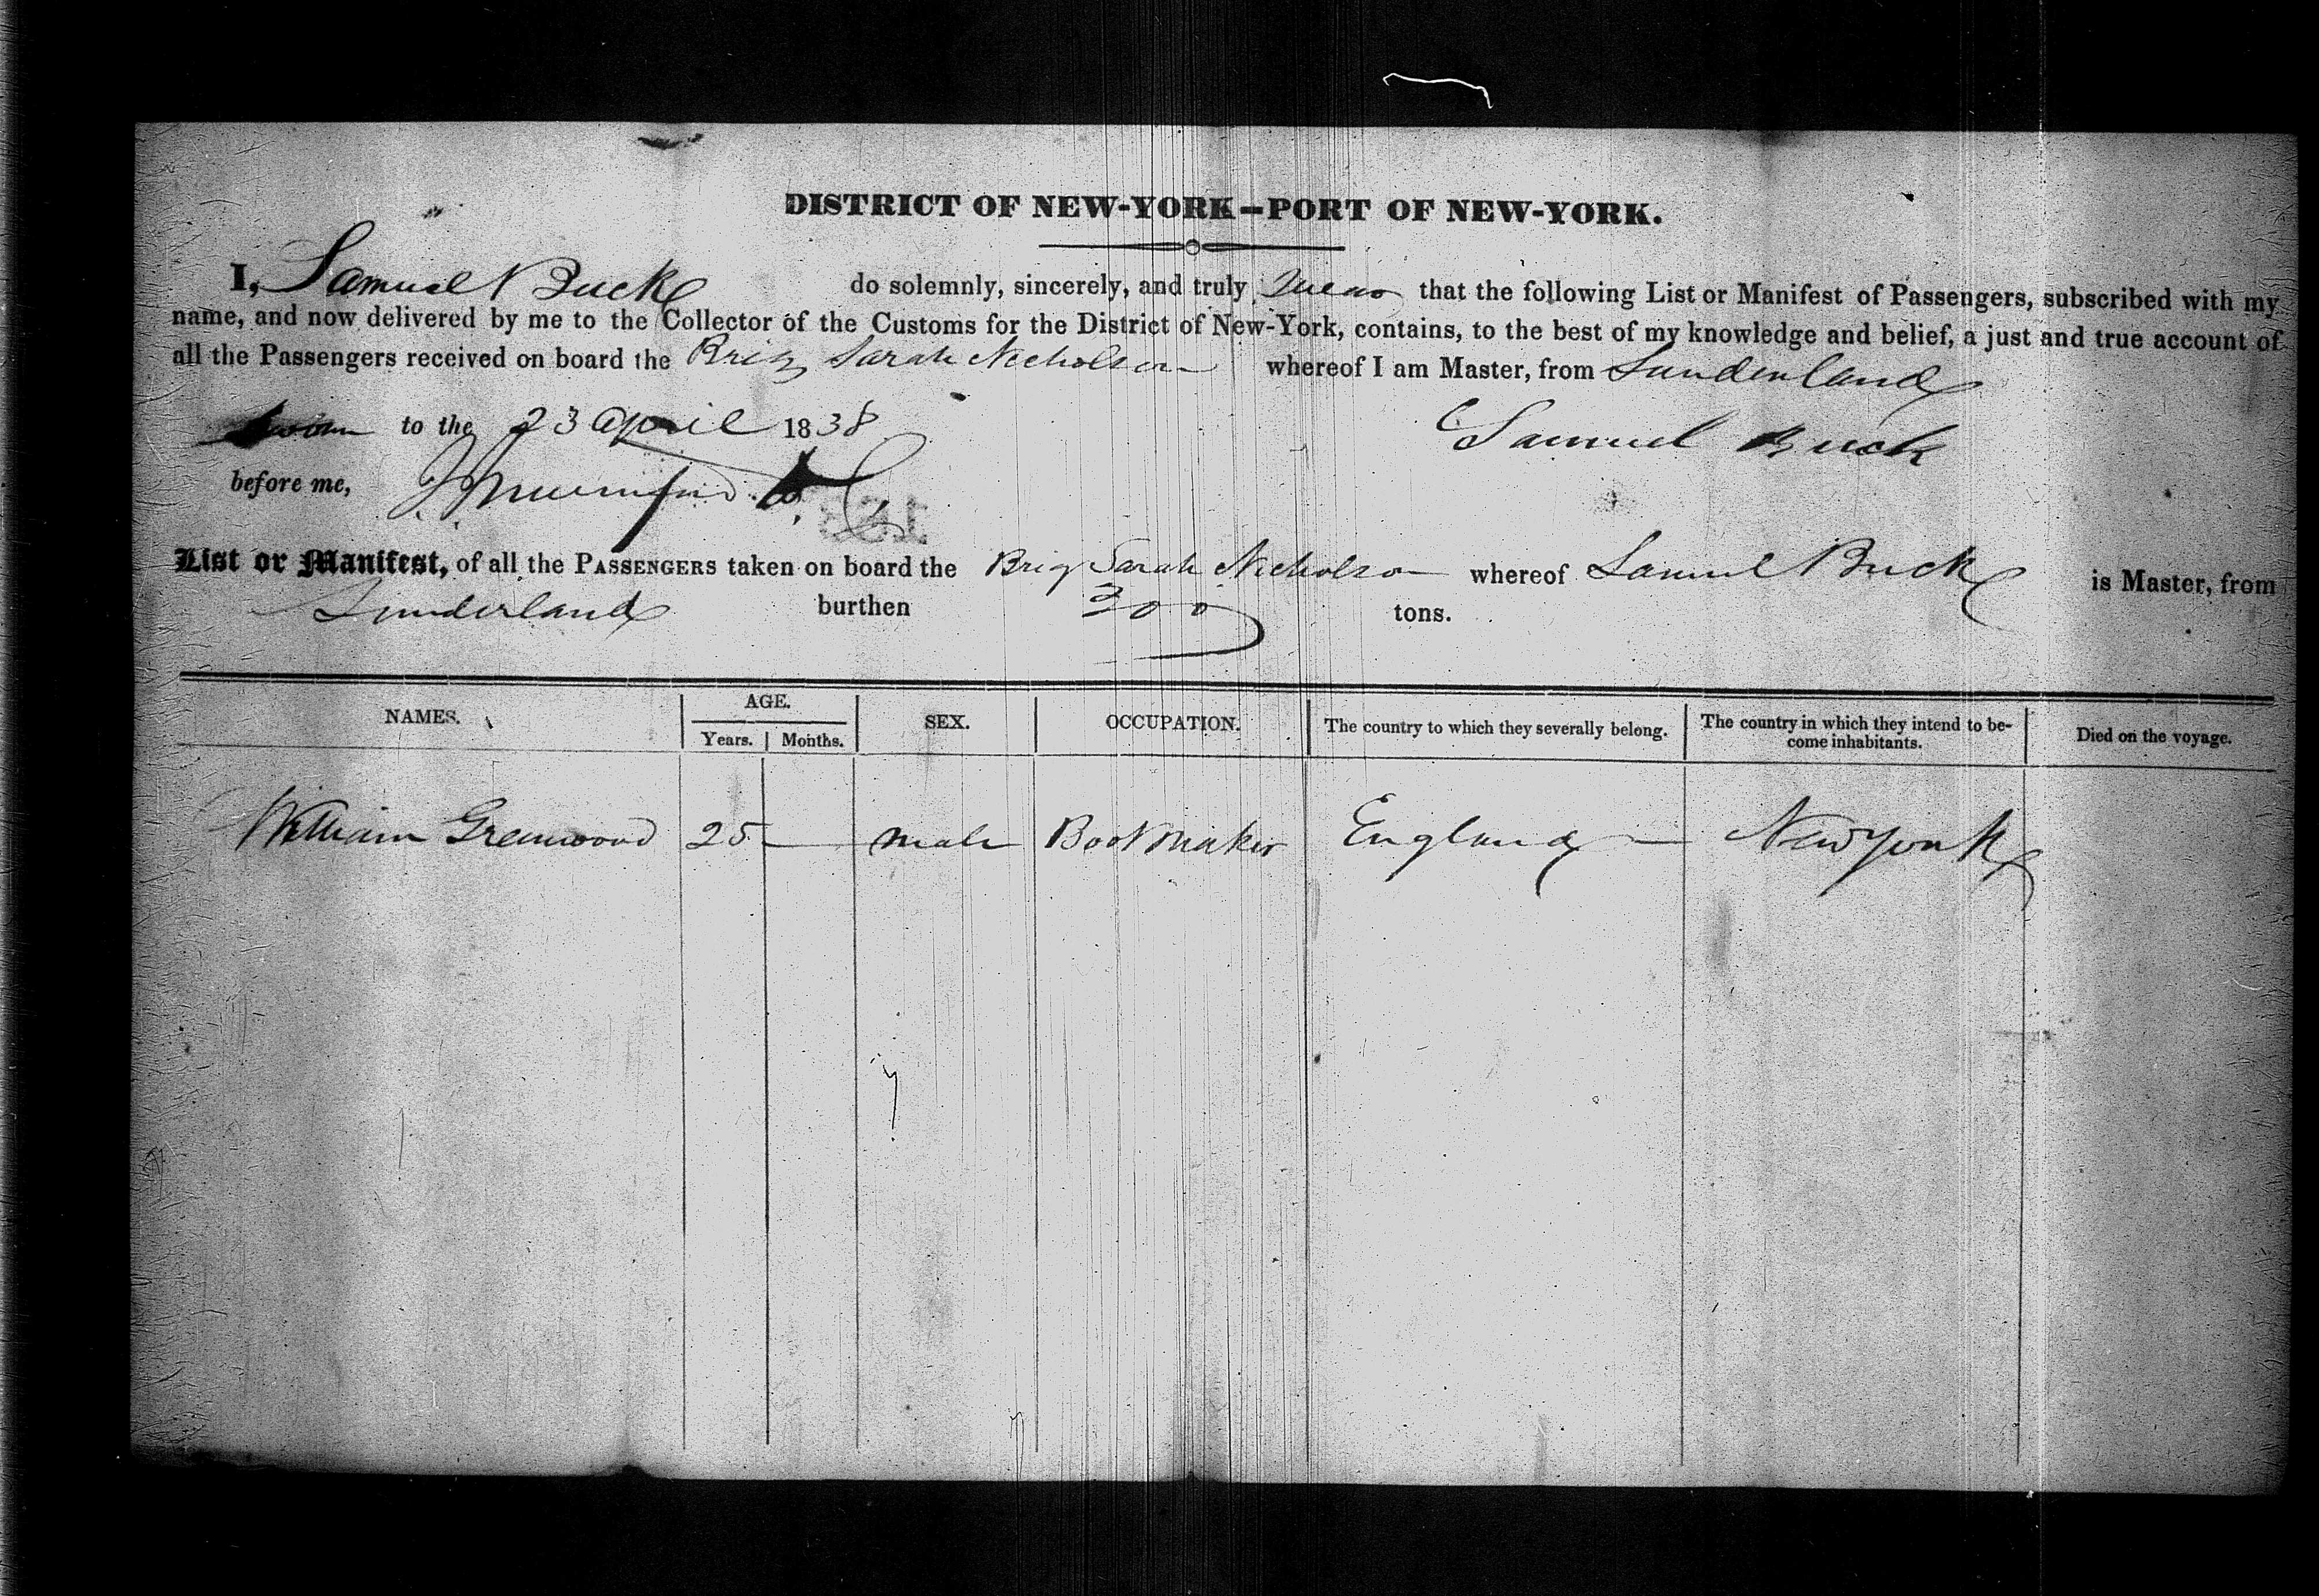 DISTRICT OF NEW-YORK—PORT OF NEW-YORK.
I, Samuel Buck do solemnly, sincerely, and truly swear that the following List or Manifest of Passengers, subscribed with my
name, and now delivered by me to the Collector of the Customs for the District of New-York, contains, to the best of my knowledge and belief, a just and true account of
all the Passengers received on board the Brig Sarah Nicholson whereof I am Master, from Sunderland
Sworn to the 23 april 1838 Samuel Buck
before me,
List or Manifest, of all the PASSENGERS taken on board the Brig Sarah Nicholson whereof Samuel Buck is Master, from
Sunderland burthen 300 tons.
NAMES. AGE. SEX. OCCUPATION. The country to which they severally belong. The country in which they intend to be- Died on the voyage.
Years. Months. come inhabitants.
William Greenwood 25 — male Bootmaker England — New York